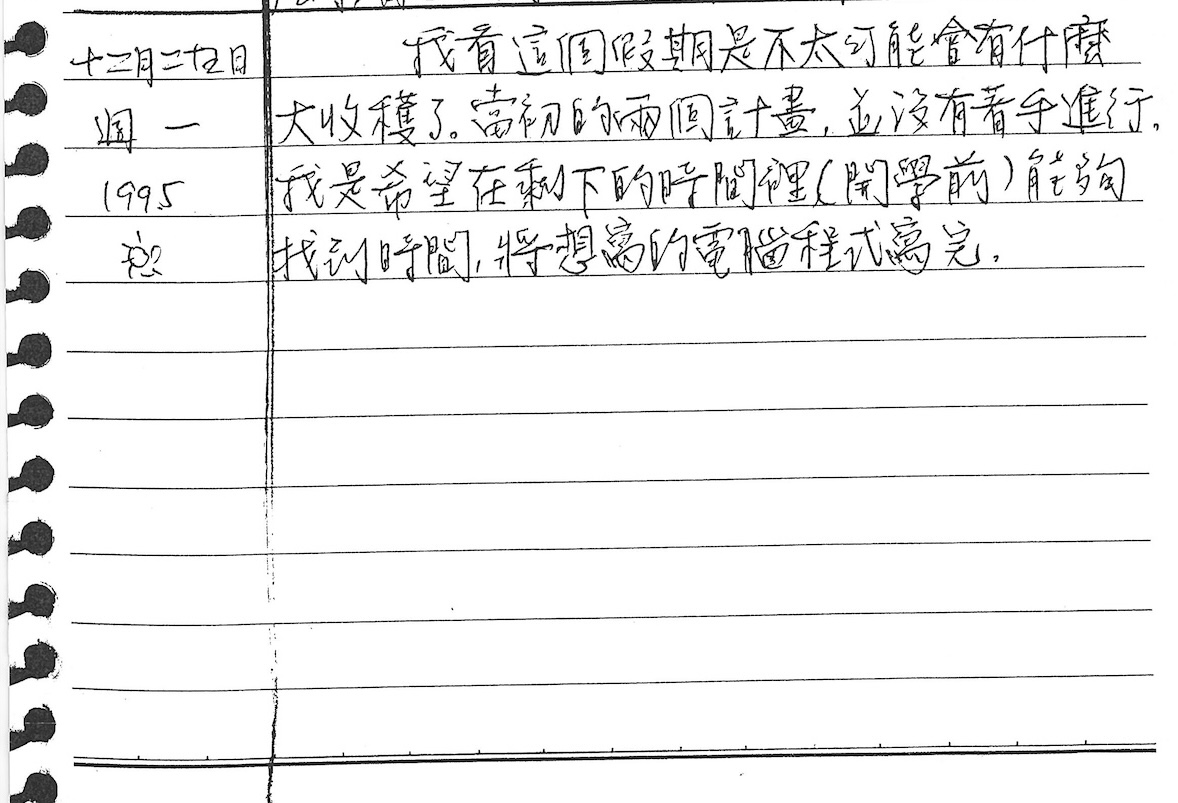 十二月二十五日
週一
1995
我看這個假期是不太可能會有什麼
大收穫了。當初的兩個計畫,並沒有著手進行。
我是希望在剩下的時間裡(開學前)能夠
找到時間,將想寫的電腦程式寫完。